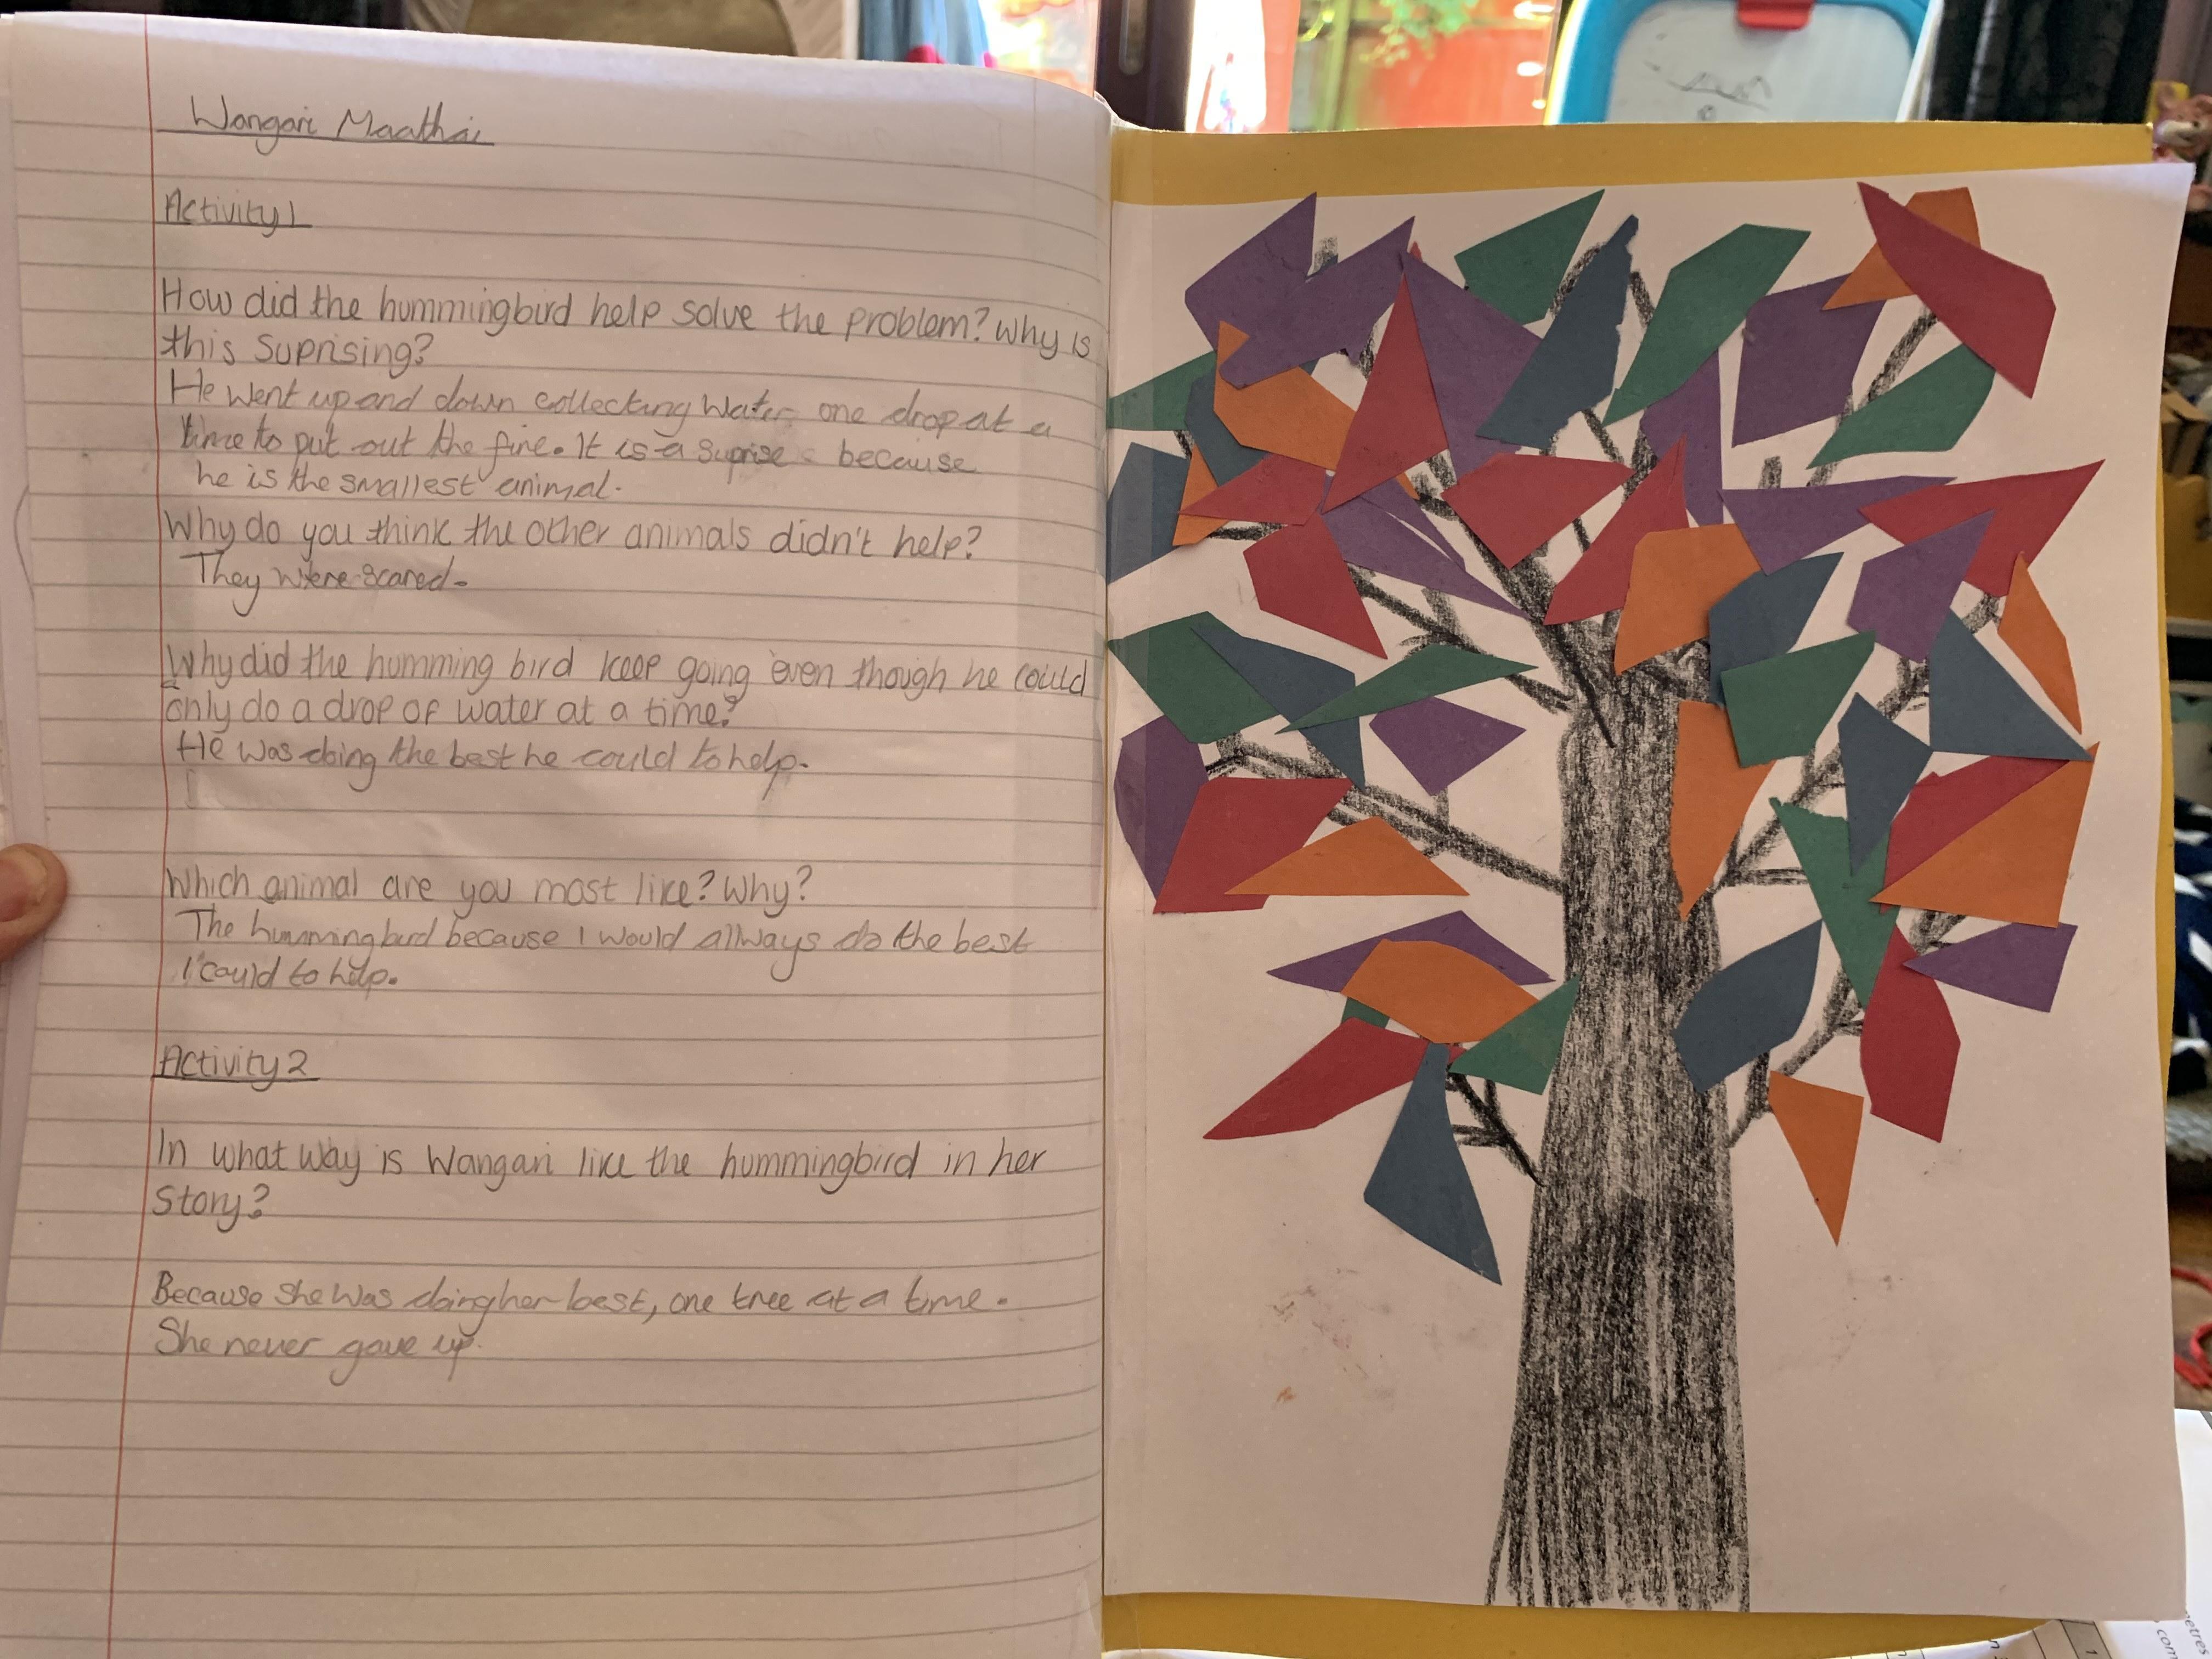 Wangari Maathai
Activity 1
How did the hummingbird help solve the problem? Why is
this Suprising?
He went up and down collecting water one drop at a
time to put out the fire. It is a suprise because
he is the smallest animal.
Why do you think the other animals didn't help?
They were scared.
Why did the humming bird keep going even though he could
only do a drop of water at a time?
He was doing the best he could to help.
Which animal are you most like? Why?
The hummingbird because I would allways do the best
I could to help.
Activity 2
In what way is Wangari like the hummingbird in her
Story?
Because she was doing her best, one tree at a time.
She never gave up.
metres
com
1